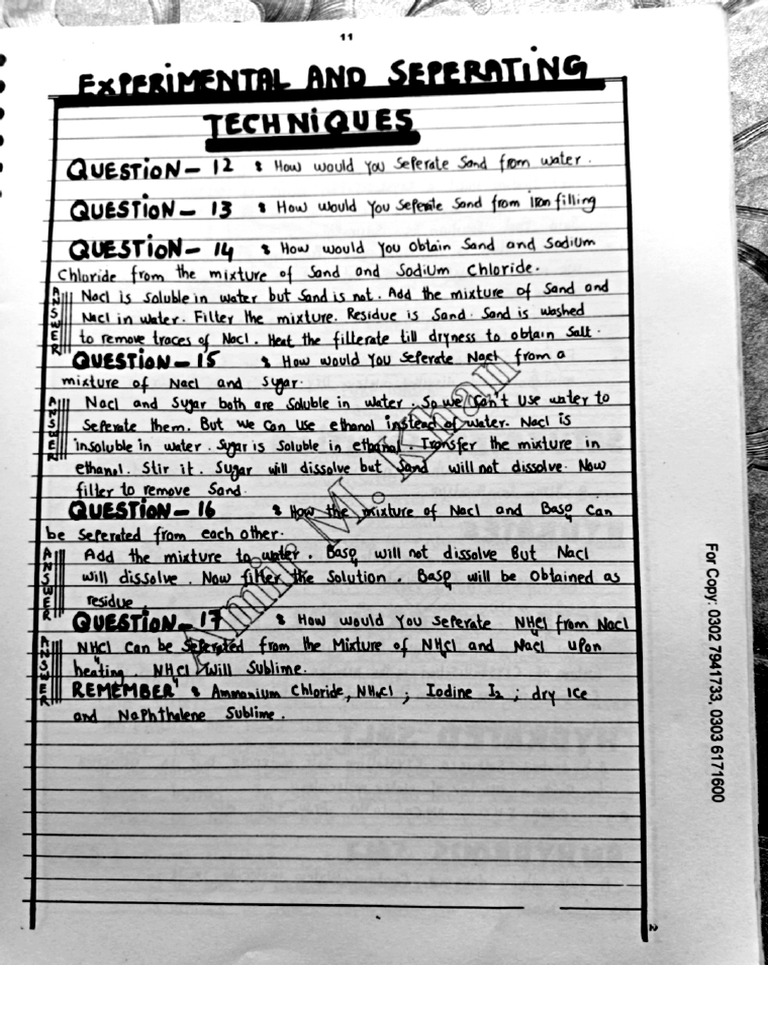 11
EXPERIMENTAL AND SEPERATING
TECHNIQUES
QUESTION - 12 : How would you seperate Sand from water.
QUESTION - 13 : How would You Seperate Sand from iron filling
QUESTION - 14 : How would you obtain Sand and Sodium
Chloride from the mixture of Sand and Sodium Chloride.
ANSWER
Nacl is Soluble in water but Sand is not. Add the mixture of Sand and
Nacl in water. Filter the mixture. Residue is Sand. Sand is washed
to remove traces of Nacl. Heat the fillerate till dryness to obtain Salt.
QUESTION - 15 : How would You Seperate Nacl from a
mixture of Nacl and Sugar.
ANSWER
Nacl and Sugar both are Soluble in water. So we Can't use water to
Seperate them. But we Can use ethanol instead of water. Nacl is
insoluble in water. Sugar is Soluble in ethanol. Transfer the mixture in
ethanol. Stir it. Sugar will dissolve but Sand will not dissolve. Now
filter to remove Sand.
QUESTION - 16 : How the mixture of Nacl and BaSO4 Can
be seperated from each other.
ANSWER
Add the mixture to water. BaSO4 will not dissolve But Nacl
will dissolve. Now filter the Solution. BaSO4 will be Obtained as
residue
QUESTION - 17 : How would You Seperate NH4Cl from Nacl
ANSWER
NH4Cl Can be Seperated from the Mixture of NH4Cl and Nacl upon
heating. NH4Cl Will Sublime.
REMEMBER : Ammonium Chloride, NH4Cl ; Iodine I2 ; dry Ice
and Naphthalene Sublime.
Amir M. Khan
For Copy: 0302 7941733, 0303 6171600